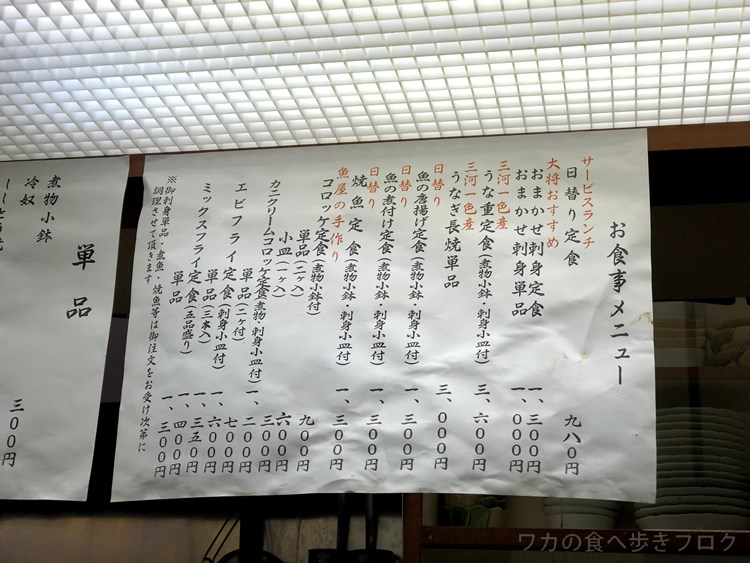 お食事メニュー
サービスランチ
日替り定食 九八〇円
大将おすすめ
おまかせ刺身定食 一、三〇〇円
おまかせ刺身単品 一、〇〇〇円
三河一色産
うな重定食(煮物小鉢・刺身小皿付) 三、六〇〇円
三河一色産
うなぎ長焼単品 三、〇〇〇円
日替り
魚の唐揚げ定食(煮物小鉢・刺身小皿付) 一、三〇〇円
日替り
魚の煮付け定食(煮物小鉢・刺身小皿付) 一、三〇〇円
日替り
焼魚定食(煮物小鉢・刺身小皿付) 一、三〇〇円
魚屋の手作り
コロッケ定食(煮物小鉢付) 九〇〇円
単品(二ヶ入) 六〇〇円
小皿(一ヶ入) 三〇〇円
カニクリームコロッケ定食(煮物・刺身小皿付) 一、二〇〇円
単品(二ヶ付) 七〇〇円
エビフライ定食(刺身小皿付) 一、六〇〇円
単品(三本入) 一、三五〇円
ミックスフライ定食(五品盛り) 一、四〇〇円
単品 一、一〇〇円
※御刺身単品・煮魚・焼魚等は御注文をお受け次第に
調理させて頂きます
単品
煮物小鉢 三〇〇円
冷奴
ワカの食べ歩きブログ